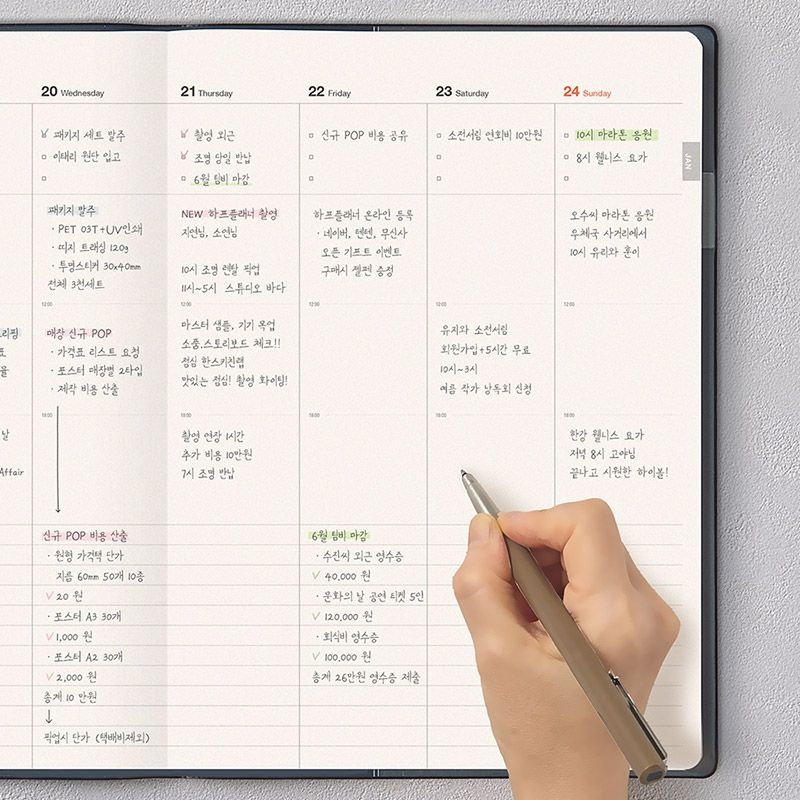 20 Wednesday
패키지 세트 발주
이태리 원단 입고
패키지 발주
· PET 03T+UV인쇄
· 띠지 트래싱 120g
· 투명스티커 30x40mm
전체 3천세트
12:00
매장 신규 POP
· 가격표 리스트 요청
· 포스터 매장별 2타입
· 제작 비용 산출
18:00
신규 POP 비용 산출
· 원형 가격택 단가
지름 60mm 50개 10종
✓ 20 원
· 포스터 A3 30개
✓ 1,000 원
· 포스터 A2 30개
✓ 2,000 원
총계 10 만원
↓
픽업시 단가 (택배비제외)
21 Thursday
촬영 외근
조명 당일 반납
6월 팀비 마감
NEW 하프플래너 촬영
지연님, 소연님
10시 조명 렌탈 픽업
11시~5시 스튜디오 바다
12:00
마스터 샘플, 기기 목업
소품, 스토리보드 체크!!
점심 한스키친랩
맛있는 점심! 촬영 화이팅!
18:00
촬영 연장 1시간
추가 비용 10만원
7시 조명 반납
22 Friday
신규 POP 비용 공유
하프플래너 온라인 등록
· 네이버, 텐텐, 무신사
오픈 기프트 이벤트
구매시 젤펜 증정
12:00
18:00
6월 팀비 마감
· 수진씨 외근 영수증
✓ 40,000 원
· 문화의 날 공연 티켓 5인
✓ 120,000 원
· 회식비 영수증
✓ 100,000 원
총계 26만원 영수증 제출
23 Saturday
소전서림 연회비 10만원
12:00
유지와 소전서림
회원가입+5시간 무료
10시~3시
여름 작가 낭독회 신청
18:00
24 Sunday
10시 마라톤 응원
8시 웰니스 요가
오수씨 마라톤 응원
우체국 사거리에서
10시 유리와 훈이
12:00
18:00
한강 웰니스 요가
저녁 8시 고야님
끝나고 시원한 하이볼!
JAN
날
Affair